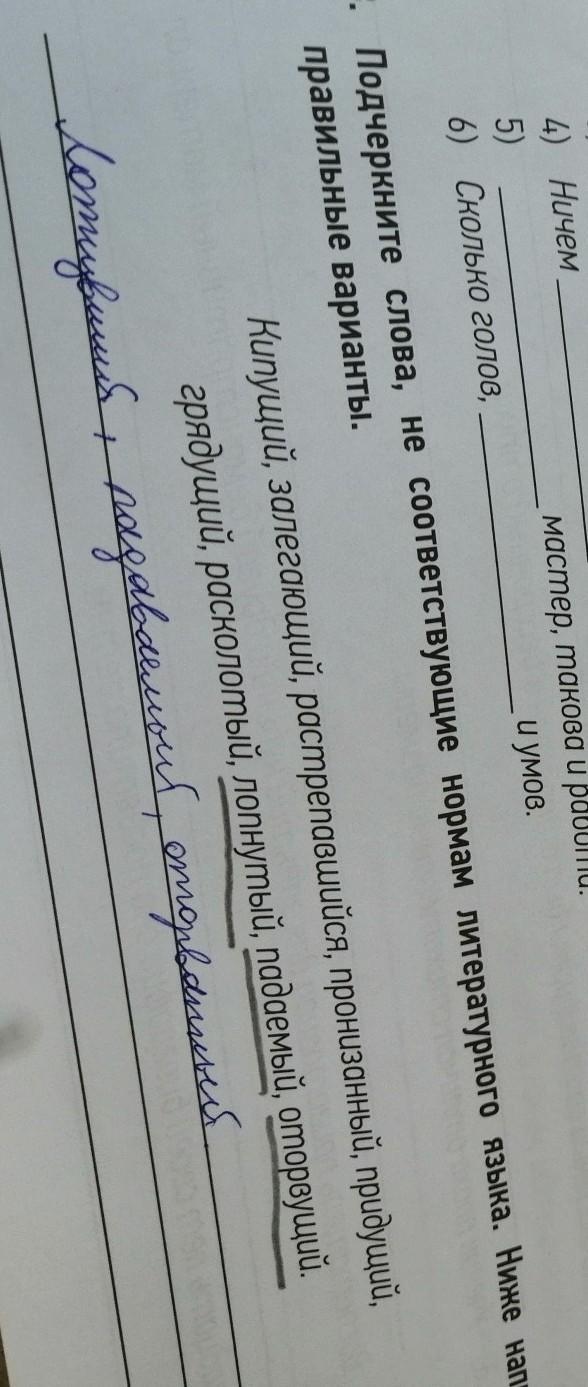 4) Ничем
5) мастер, такова и работа.
6) Сколько голов, и умов.
Подчеркните слова, не соответствующие нормам литературного языка. Ниже
правильные варианты.
Кипущий, залегающий, растрепавшийся, пронизанный, придущий,
грядущий, расколотый, лопнутый, падаемый, оторвущий.
Лопнувший, падаваемый, оторванный